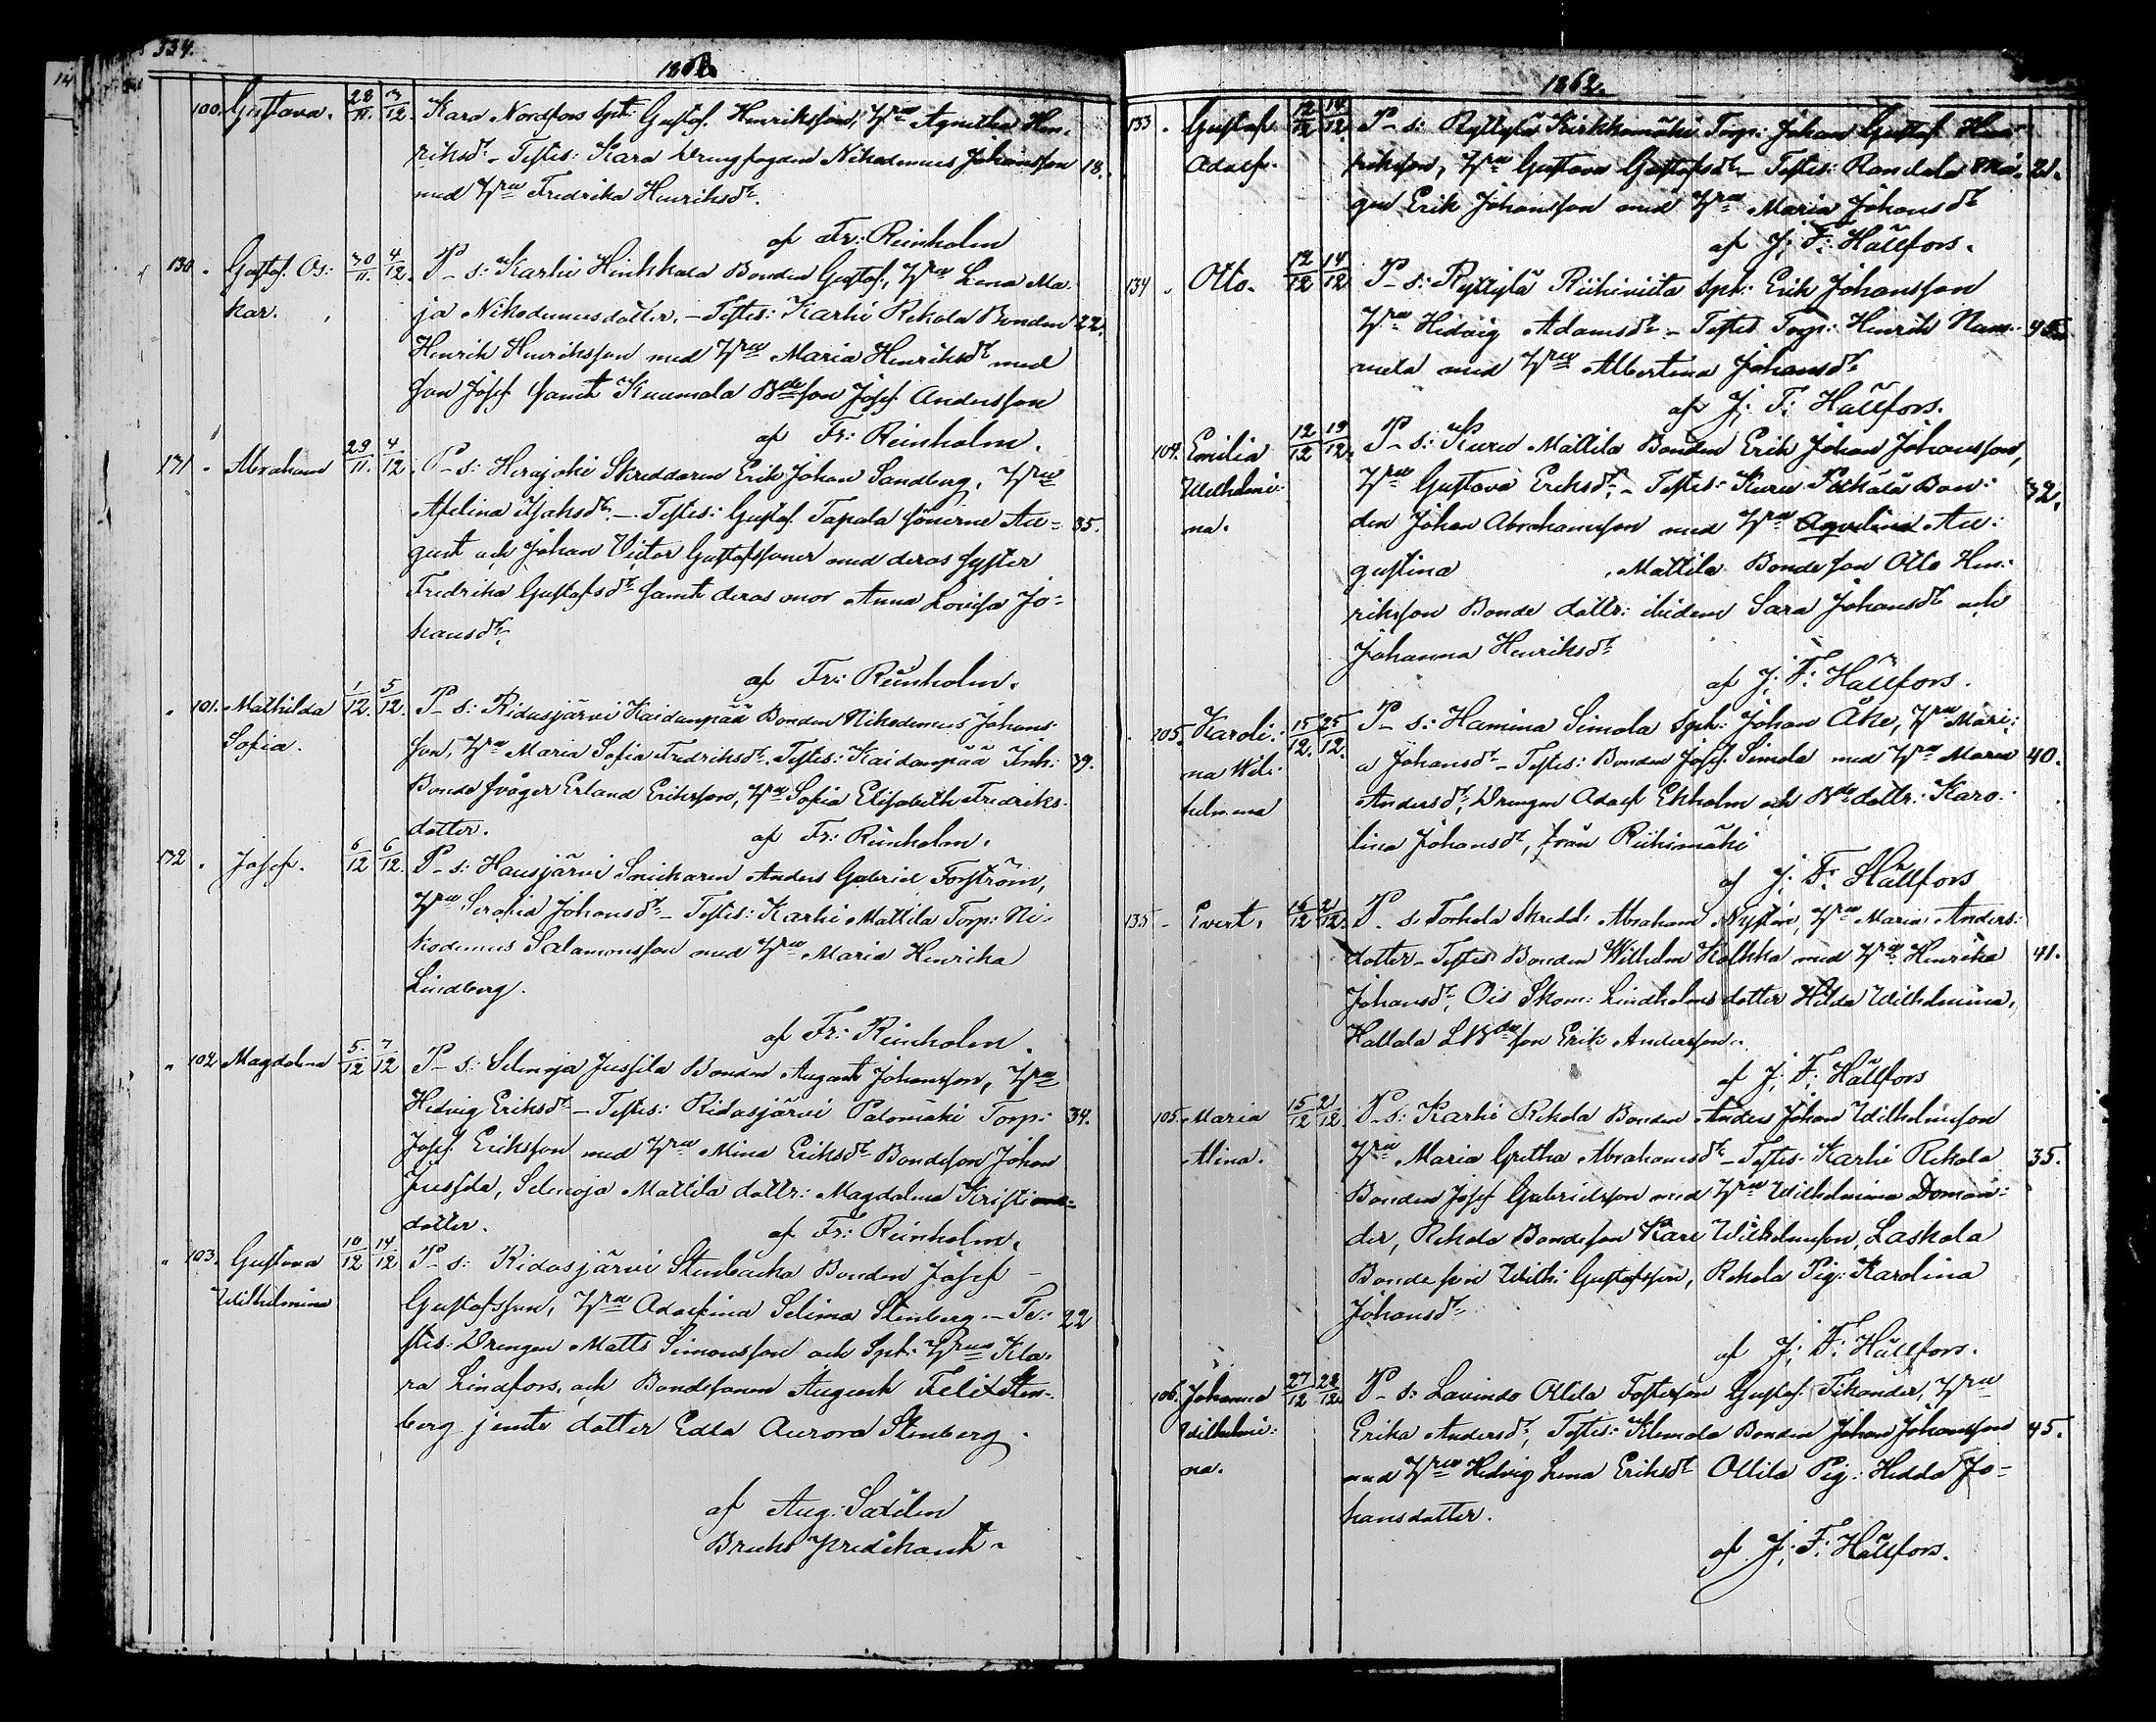 334.
1862
100. Gustava. 28/11. 3/12. Kara Nordfors Spt: Gustaf Henriksson, H:ru Agnetha Hen-
riksd:r - Testes: Kara Drengfogden Nikodemus Johansson 18.
med H:ru Fredrika Henriksd:r
af Fr: Reinholm
130. Gustaf Os: 30/11. 4/12. P-s: Karhi Hinkkala Bonden Gustaf, H:ru Lena Ma
kar. ja Nikodemusdotter. - Testes: Karhi Rekola Bonden 22.
Henrik Henriksson med H:ru Maria Henriksd:r med
son Josef samt Knumola B:de son Josef Andersson
af Fr: Reinholm.
131. Abraham 29/11. 4/12. P-s: Herajoki Skreddaren Erik Johan Sandberg, H:ru
Afelina Isaksd:r - Testes: Gustaf Tapola sönerne Au- 35.
gust och Johan Victor Gustafssöner med deras syster
Fredrika Gustafsd:r samt deras mor Anna Lovisa Jo-
hansd:r
af Fr: Reinholm.
101. Mathilda 1/12. 5/12. P-s: Ridasjärvi Kaidanpää Bonden Nikodemus Johans
Sofia. son, H:ru Maria Sofia Fredriksd:r. Testes: Kaidanpää Inh: 39.
Bonde svåger Erland Eriksson, H:ru Sofia Elisabeth Fredriks-
dotter. af Fr: Reinholm.
132. Josef. 6/12 6/12. P-s: Hausjärvi Snickaren Anders Gabriel Forström,
H:ru Serafia Johansd:r - Testes: Karhi Mattila Torp: Ni-
kodemus Salamonsson med H:ru Maria Henrika
Lindberg.
af Fr: Reinholm.
102 Magdalena 5/12 7/12 P-s: Selenoja Jussila Bonden August Johansson, H:ru
Hedvig Eriksd:r - Testes: Ridasjärvi Palomäki Torp: 34.
Josef Eriksson med H:ru Mina Eriksd:r Bondeson Johan
Jussila, Selenoja Mattila dottr: Magdalena Kristians-
dotter. af Fr: Reinholm.
103. Gustava 10/12 14/12 P-s: Ridasjärvi Stenbacka Bonden Josef
Wilhelmina Gustafsson, H:ru Adolfina Selima Stenberg. - Te: 22
stes: Drengen Matts Simonsson och Spt: H:ru Kla-
ra Lindfors, och Bondesonen August Felix Sten-
berg jemte dotter Edla Aurora Stenberg.
af Aug: Saxelin
Bruks predikant.
1862.
133. Gustaf 12/12 14/12. P-s: Ryttylä Kirkkomäki Torp: Johan Gustaf Hen-
Adolf. riksson, H:ru Gustava Gustafsd:r - Testes: Randala Må- 21.
gen Erik Johansson med H:ru Maria Johansd:r
af J: F: Hällfors.
134. Otto. 12/12 14/12 P-s: Ryttylä Riihiviita Spt: Erik Johansson
H:ru Hedvig Adamsd:r - Testes Torp: Henrik Num-
mela med H:ru Albertina Johansd:r
af J: F: Hällfors.
104. Emilia 12/12 19/12. P-s: Kuru Mattila Bonden Erik Johan Johansson,
Wilhelmi- H:ru Gustava Eriksd:r - Testes: Kuru Pekala Bon- 32.
na. den Johan Abrahamsson med H:ru Au:
gustina , Mattila Bondeson Otto Hen-
riksson Bonde dottr: ibidem Sara Johansd:r och
Johanna Henriksd:r
af J: F: Hällfors.
105. Karoli: 15/12. 25/12. P-s: Hamina Simola Spt: Johan Åke, H:ru Mari:
na Wil: a Johansd:r - Testes: Bonden Josef Simola med H:ru Maria 40.
helmina Andersd:r, Drengen Adolf Ekholm och B:de dottr: Karo-
lina Johansd:r, från Riihimäki
af J: F: Hällfors
135. Evert. 16/12 21/12. P-s Torhola Skredd: Abraham Nyström, H:ru Maria Anders-
dotter - Testes Bonden Wilhelm Kolkka med H:ru Henrika 41.
Johansd:r, Ois Skom: Lindholms dotter Hilda Wilhelmina,
Hallala LB:de son Erik Andersson.
af J: F: Hällfors
105. Maria 15/12 21/12. P-s: Karhi Rekola Bonden Anders Johan Wilhelmsson
Alina. H:ru Maria Gretha Abrahamsd:r - Testes: Karhi Rekola 35.
Bonden Josef Gabrielsson med H:ru Wilhelmina Doman-
der, Rekola Bondeson Karl Wilhelmsson, Laskala
Bondeson Wilh: Gustafsson, Rekola Pig: Karolina
Johansd:r
af J: F: Hällfors.
106. Johanna 27/12 28/12. P-s: Lavindo Ollila Fosterson Gustaf Tikander, H:ru
Wilhelmi: Erika Andersd:r, Testes: Klemola Bonden Johan Johansson 45.
na. med H:ru Hedvig Lena Eriksd:r Ollila Pig: Hedda Jo-
hansdotter.
af J: F: Hällfors.